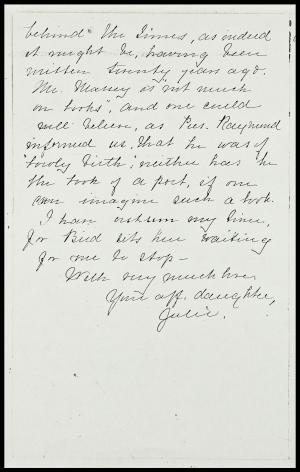 behind" the times, as indeed
it might be, having been
written twenty years ago.
Mr. Massey is "not much
on looks", and one could
well believe, as Pres. Raymond
informed us, that he was of
"lowly birth"; neither has he
the look of a poet, if one
can imagine such a look.
I have outrun my time,
for Bird sits here waiting
for me to stop –
With very much love
Your aff. daughter,
Julie.